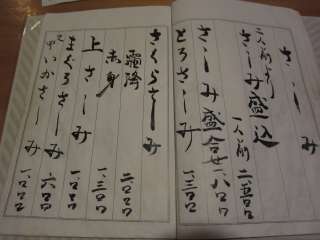 さしみ
二人前より
さしみ盛込 一人前 二、五〇〇
さしみ盛合せ 一、八〇〇
とろさしみ 一、三〇〇
さくらさしみ
霜降 二、〇〇〇
赤身
上さしみ 一、三〇〇
まぐろさしみ
いかさしみ 六〇〇